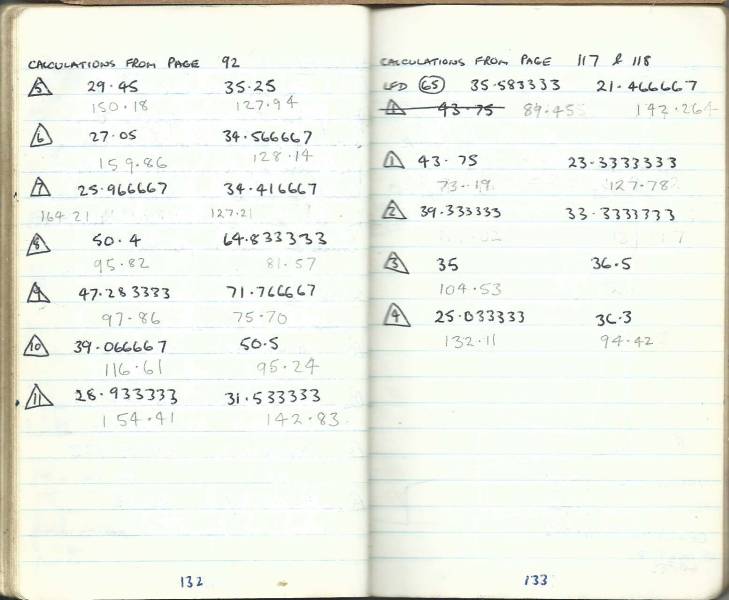 CALCULATIONS FROM PAGE 92
5 29.45 35.25
150.18 127.94
6 27.05 34.566667
159.86 128.14
7 25.966667 34.416667
164.21 127.21
8 50.4 64.833333
95.82 81.57
9 47.283333 71.766667
97.86 75.70
10 39.066667 50.5
116.61 95.24
11 28.933333 31.533333
154.41 142.83
132
CALCULATIONS FROM PAGE 117 & 118
LFD 65 35.583333 21.466667
1 43.75 89.455 142.264
1 43.75 23.3333333
73.19 127.78
2 39.333333 33.3333333
3 35 36.5
104.53
4 25.033333 36.3
132.11 94.42
133